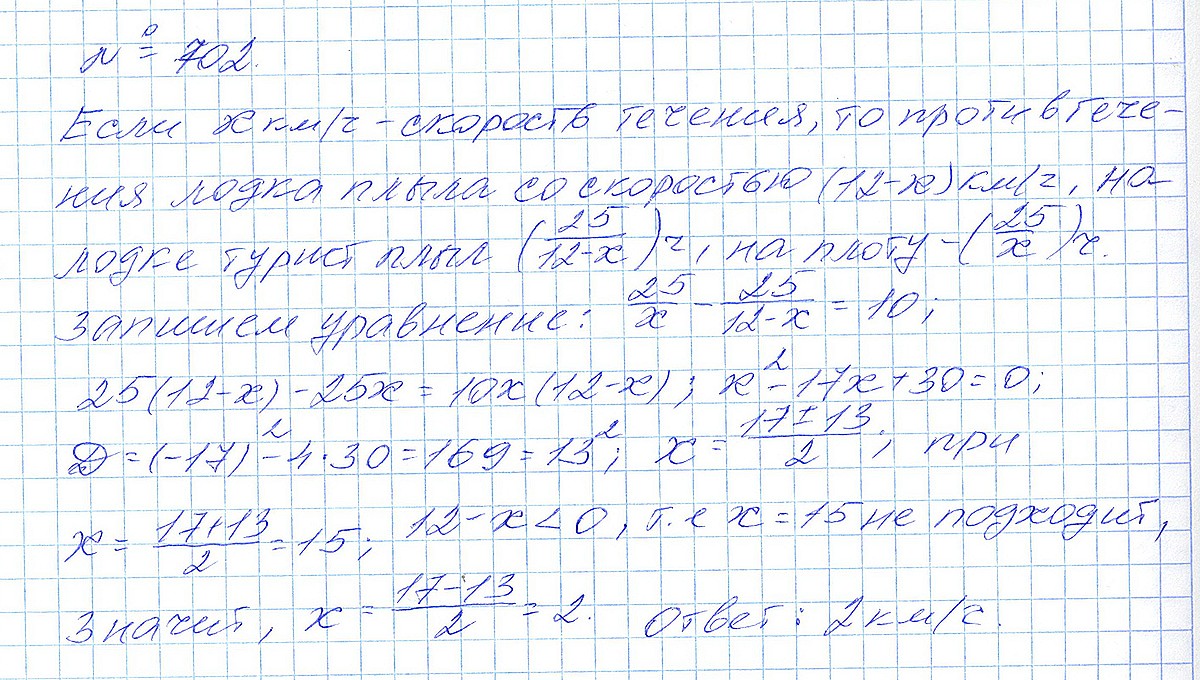 № 702.
Если x км/ч – скорость течения, то против тече-
ния лодка плыла со скоростью (12-x) км/ч, на
лодке турист плыл (25/(12-x)) ч, на плоту – (25/x) ч.
Запишем уравнение: 25/x - 25/(12-x) = 10;
25(12-x) - 25x = 10x(12-x); x² - 17x + 30 = 0;
D = (-17)² - 4·30 = 169 = 13²; x = (17±13)/2; при
x = (17+13)/2 = 15; 12-x < 0, т.е x = 15 не подходит,
значит, x = (17-13)/2 = 2. Ответ: 2 км/ч.